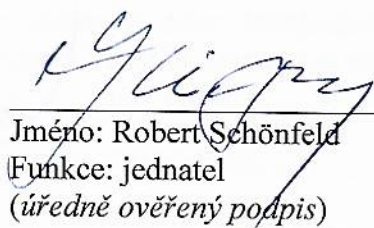 Jméno: Robert Schönfeld
Funkce: jednatel
(úředně ověřený podpis)